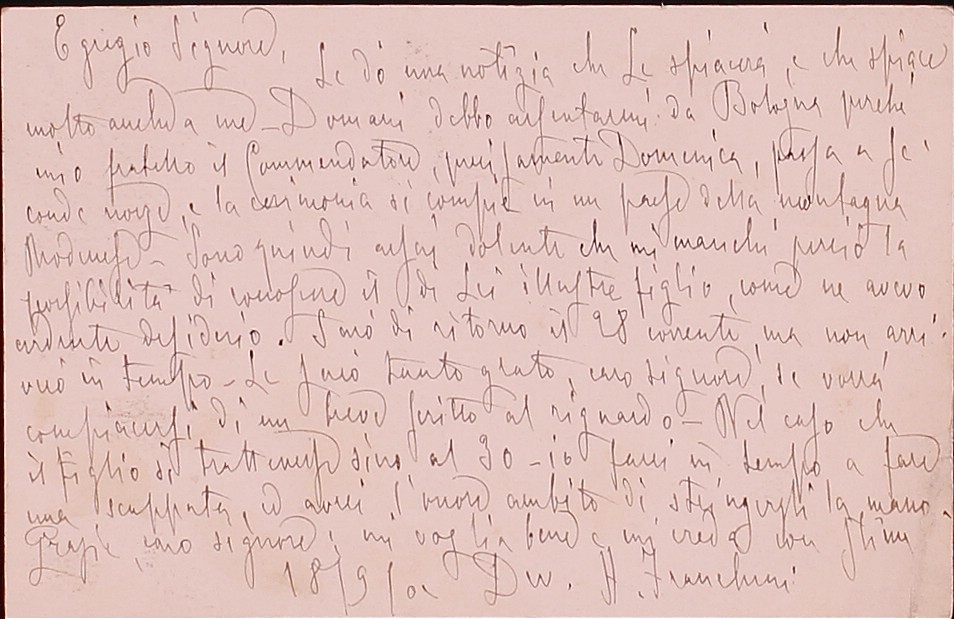 Egregio Signore,
Le dò una notizia che Le spiacerà, e che spiace
molto anche a me – Domani debbo assentarmi da Bologna perchè
mio fratello il Commendatore, precisamente Domenica, passa a se-
conde nozze, e la cerimonia si compie in un paese della montagna
Modenese – Sono quindi assai dolente che mi manchi perciò la
possibilità di conoscere il di Lei illustre figlio, come ne avevo
ardente desiderio. Sarò di ritorno il 28 corrente, ma non arri-
verò in tempo – Le sarò tanto grato, caro signore, se vorrà
compiacersi di un breve scritto al riguardo – Nel caso che
il Figlio si trattenesse sino al 30 – io farei in tempo a fare
una scappata, ed avrei l'onore ambito di stringergli la mano.
Grazie, caro signore; mi voglia bene e mi creda con stima
18/9/01 Dev. A. Franchini